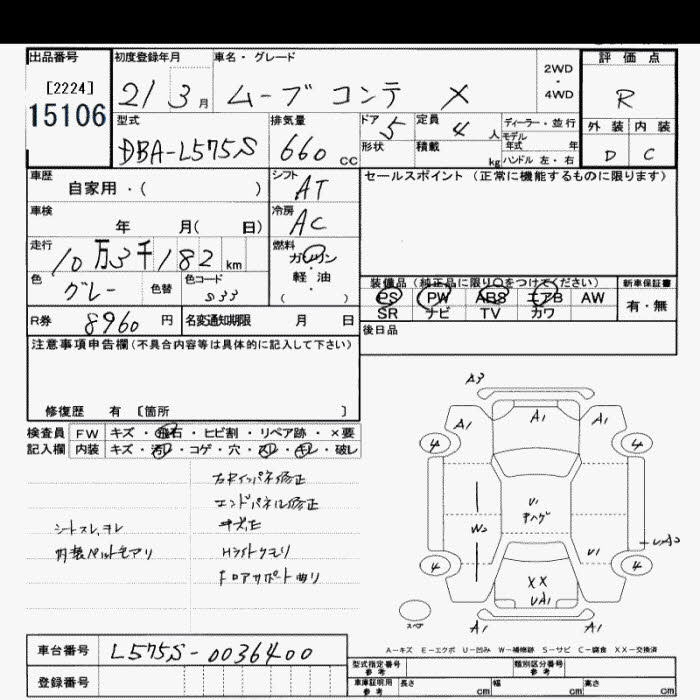 出品番号
[2224]
15106
初度登録年月
21 3月
車名・グレード
ムーブ コンテ X
2WD
・
4WD
評価点
R
外装 内装
D C
型式
DBA-L575S
排気量
660 cc
ドア 5
形状
定員 4 人
積載 kg
ディーラー・並行
モデル
年式 年
ハンドル 左・右
車歴
自家用・( )
シフト
AT
セールスポイント (正常に機能するものに限ります)
車検
年 月( 日)
冷房
AC
走行
10万3千182 km
燃料
ガソリン
・
軽油
( )
色
グレー
色替
色コード
S33
装備品 (純正品に限り○をつけてください)
PS PW ABS エアB AW
SR ナビ TV カワ
新車保証書
有・無
R券 8960 円
名変通知期限 月 日
後日品
注意事項申告欄 (不具合内容等は具体的に記入して下さい)
修復歴 有 〔箇所 〕
検査員 FW キズ・飛石・ヒビ割・リペア跡・×要
記入欄 内装 キズ・汚レ・コゲ・穴・スレ・キレ・破レ
右Rインパネ修正
エンドパネル修正
シートスレ、キレ
内装ペット毛アリ
Hライトクモリ
FロアサポートIII曲り
A3
A1 A1 A1
4 4
U1
キハゲ
W2
U1
4 4
XX
UA1
A1 A1
スペア
A-キズ E-エクボ U-凹み W-補修跡 S-サビ C-腐食 XX-交換済
車台番号 L575S-0036400
登録番号
型式指定番号
参考
類別区分番号
参考
車庫証明用
参考
長さ cm 幅 cm 高さ cm